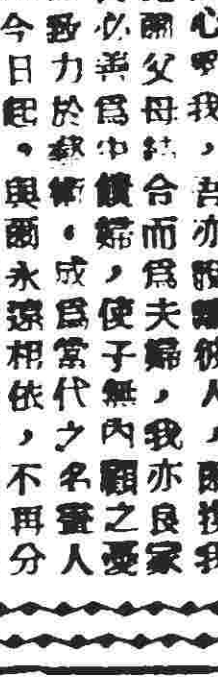 心 我，吾亦 彼人，
爾父母結合而爲夫婦，我亦良家
必善爲中饋婦，使子無內顧之憂
致力於藝術。成爲當代之名畫人
今日起。與爾永遠相依，不再分